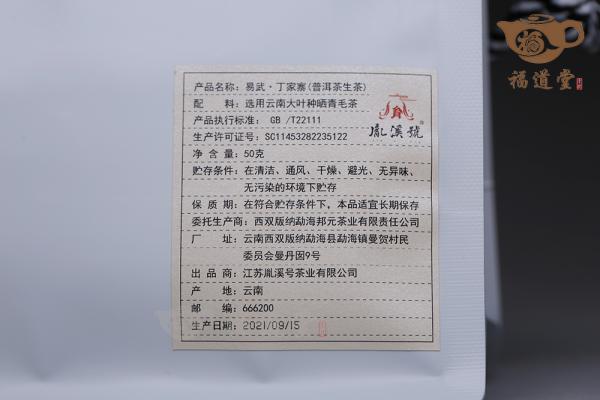 福道堂
产品名称：易武·丁家寨(普洱茶生茶)
配　　料：选用云南大叶种晒青毛茶
产品执行标准： GB /T22111
生产许可证号：SC11453282235122
净 含 量：50克
贮存条件：在清洁、通风、干燥、避光、无异味、
无污染的环境下贮存
保 质 期：在符合贮存条件下，本品适宜长期保存
委托生产商：西双版纳勐海邦元茶业有限责任公司
厂　　址：云南西双版纳勐海县勐海镇曼贺村民
委员会曼丹囡9号
出 品 商：江苏胤溪号茶业有限公司
产　　地：云南
邮　　编：666200
生产日期：2021/09/15
胤溪號®